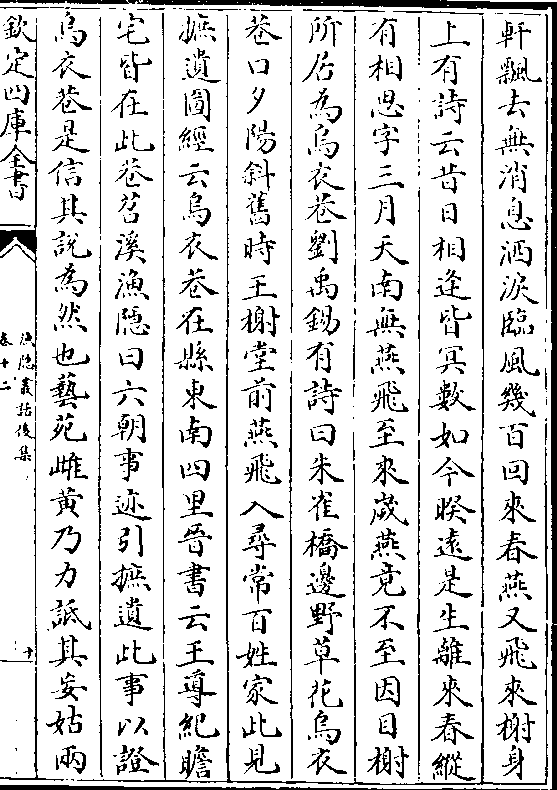 軒飄去無消息洒淚臨風幾百回來春燕又飛來榭身
上有詩云昔日相逢皆冥數如今睽遠是生離來春縱
有相思字三月天南無燕飛至來歲燕竟不至因目榭
所居為烏衣巷劉禹錫有詩曰朱雀橋邊野草花烏衣
巷口夕陽斜舊時王榭堂前燕飛入尋常百姓家此見
摭遺圖經云烏衣巷在縣東南四里晉書云王導紀瞻
宅皆在此巷苕溪漁隱曰六朝事迹引摭遺此事以證
烏衣巷是信其說為然也藝苑雌黄乃力詆其妄姑兩
欽定四庫全書
漁隠叢話後集
卷十二
十